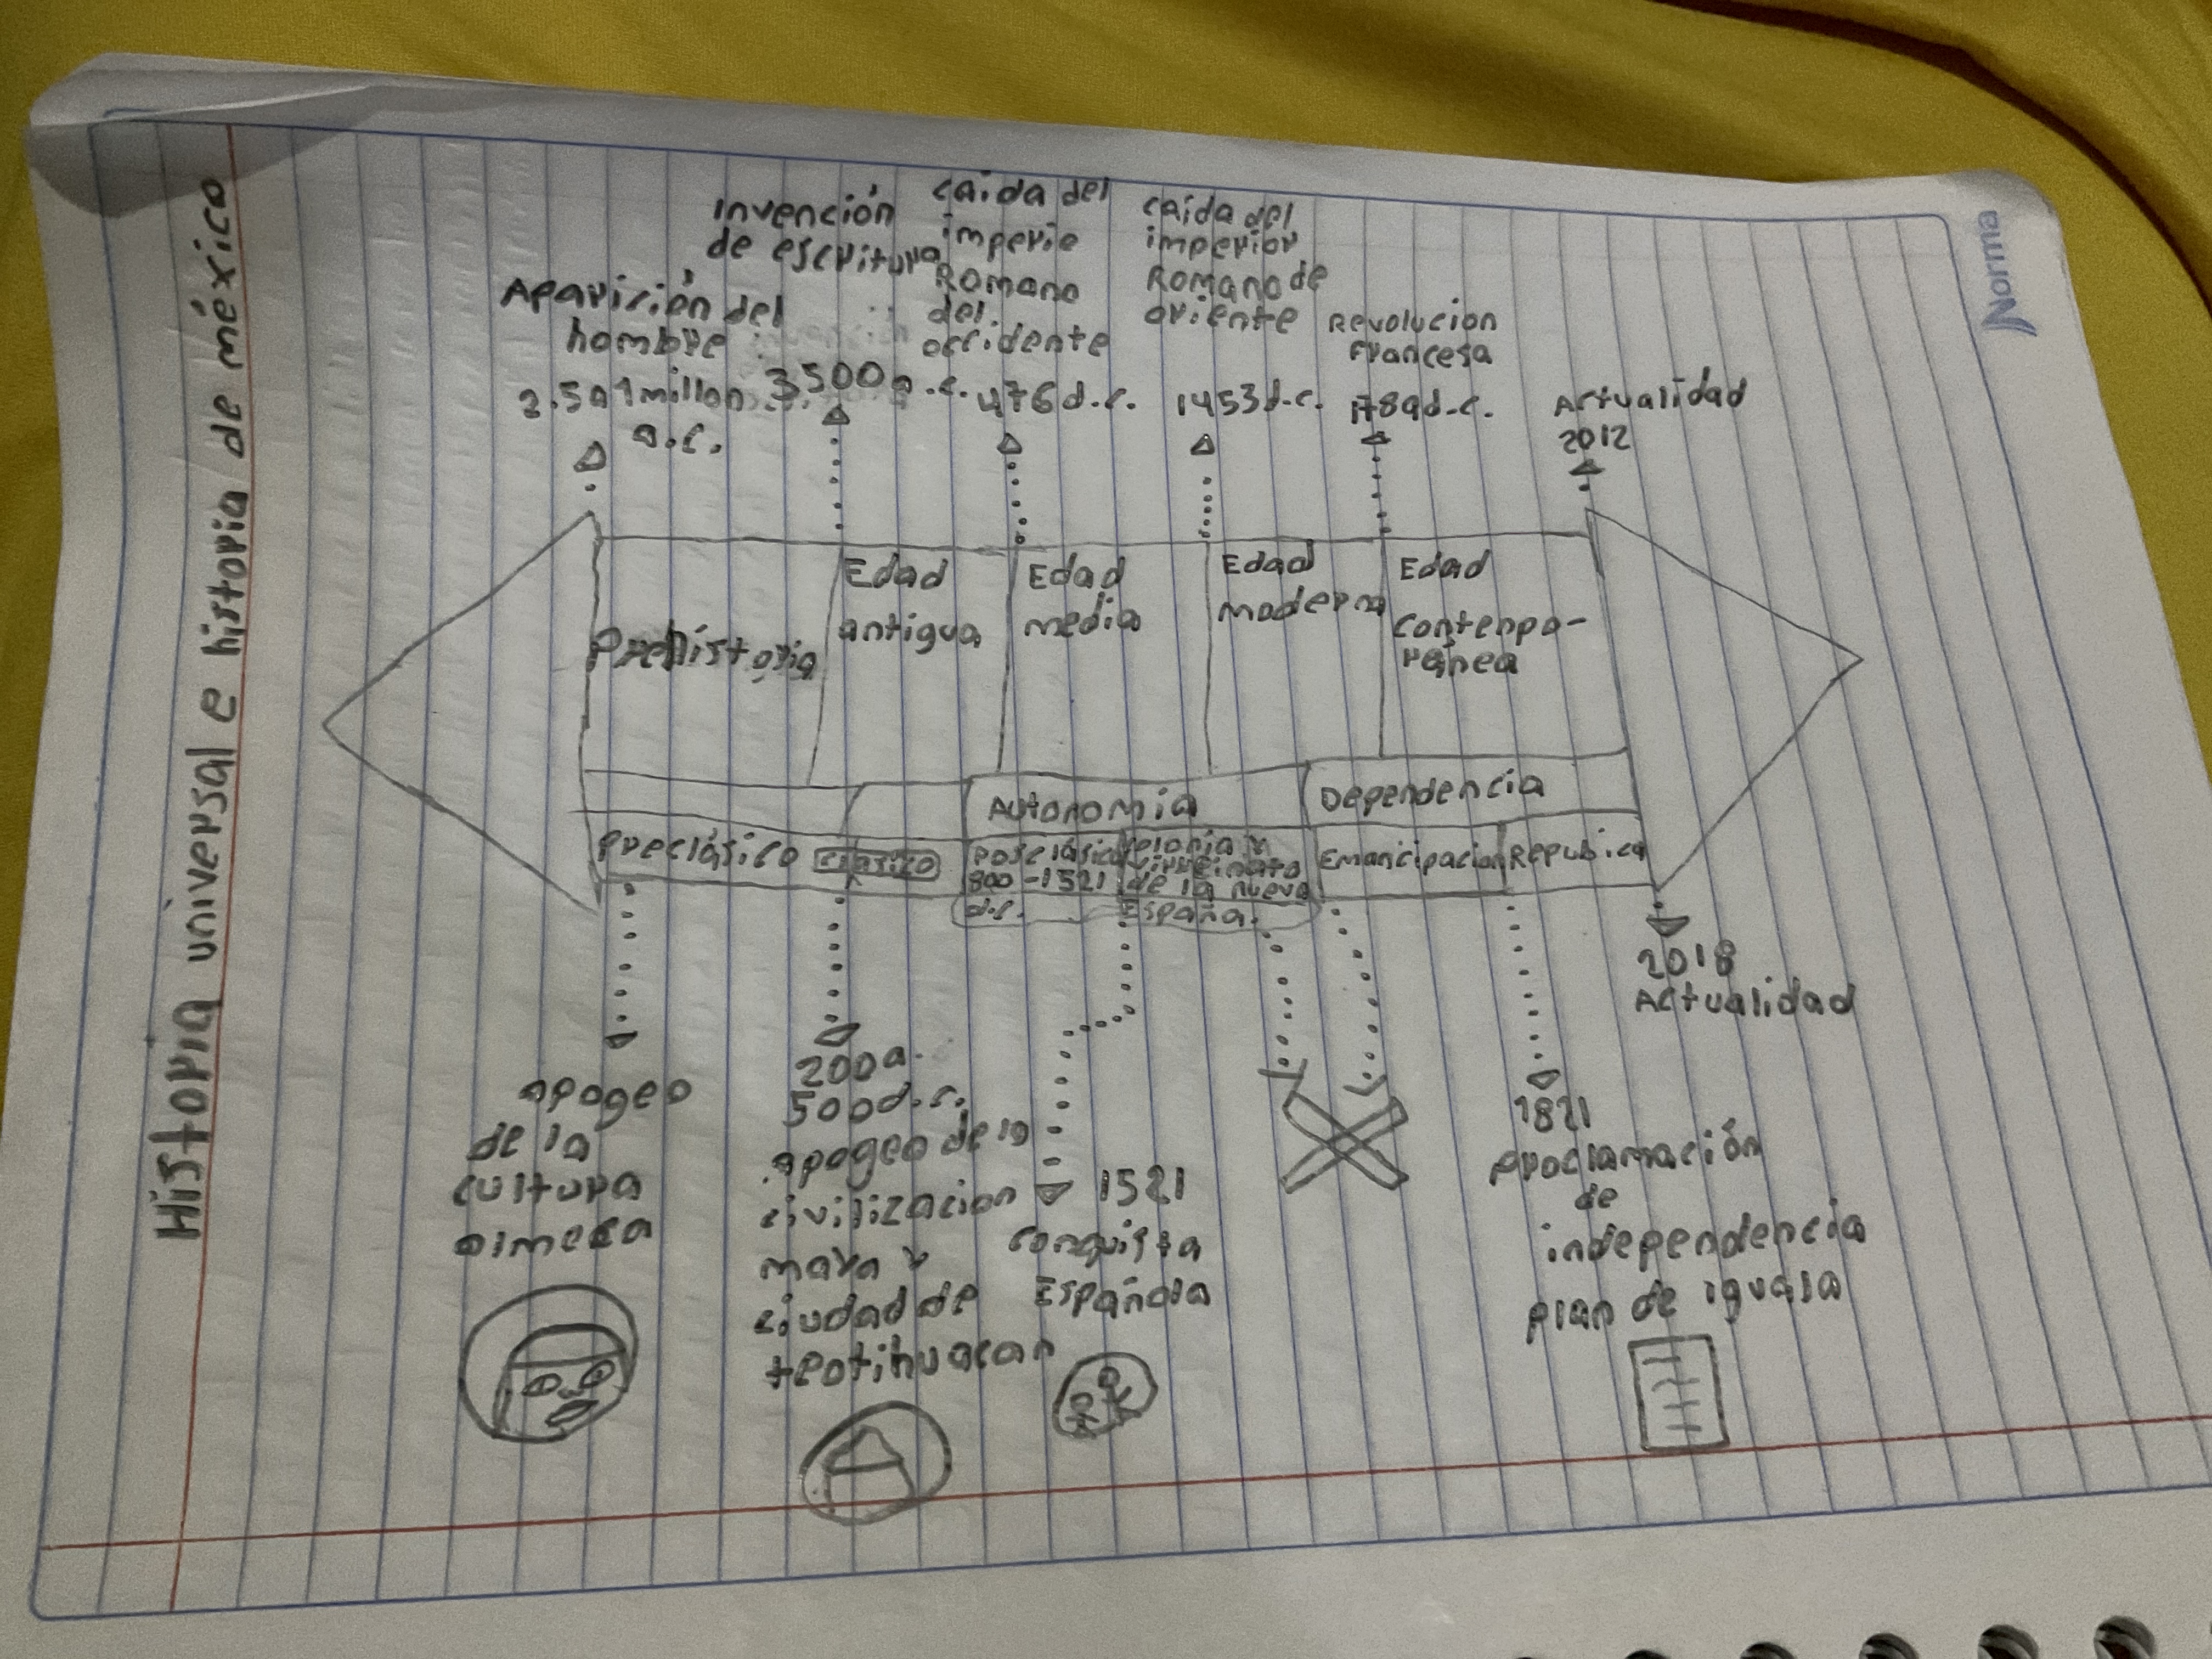 Historia universal e historia de méxico
Norma
Aparición del
hombre
2.5 a 1 millon
a.c.
Invención
de escritura
3500 a.c.
caida del
imperio
Romano
del
occidente
476 d.c.
caida del
imperior
Romano de
oriente
1453 d.c.
Revolucion
Francesa
1789 d.c.
Actualidad
2012
Prehistoria
Edad
antigua
Edad
media
Edad
moderna
Edad
contenpo-
ránea
Autonomia
Dependencia
Preclásico
clasico
Posclásico
800-1521
d.c.
colonia y
virreinato
de la nueva
España.
Emancipacion
Republica
apogeo
de la
cultura
olmeca
200 a.
500 d.c.
apogeo de la
civilizacion
maya y
ciudad de
teotihuacan
1521
conquista
Española
1821
Proclamación
de
independencia
plan de iguala
2018
Actualidad